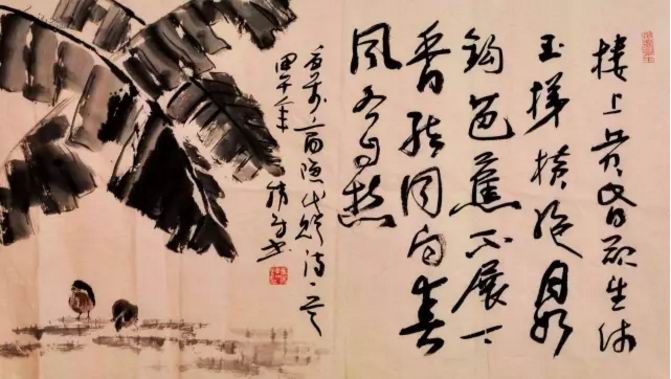 楼上黄昏欲望休
玉梯横绝月如
钩芭蕉不展丁
香结同向春
风各自愁
商隐代赠诗
甲午年
书